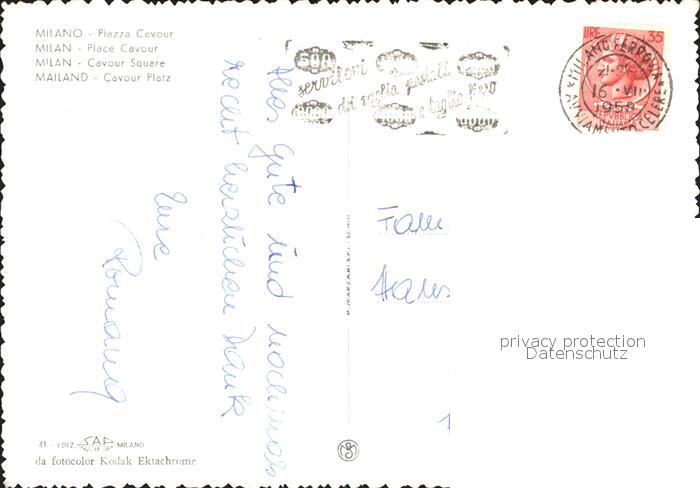 MILANO - Piazza Cavour
MILAN - Place Cavour
MILAN - Cavour Square
MAILAND - Cavour Platz
500
servitevi
dei vaglia postali
a taglio fisso
LIRE 35
MILANO FERROVIA
21-
16 · VIII
1958
REPUBBLICA
ITALIANA
Alles Gute und nochmals
recht herzlichen Dank
Eure
P. MARZARI S.R.L. - SCHIO
Fam.
Hans
privacy protection
Datenschutz
41 - EDIZ. SAF - MILANO
da fotocolor Kodak Ektachrome